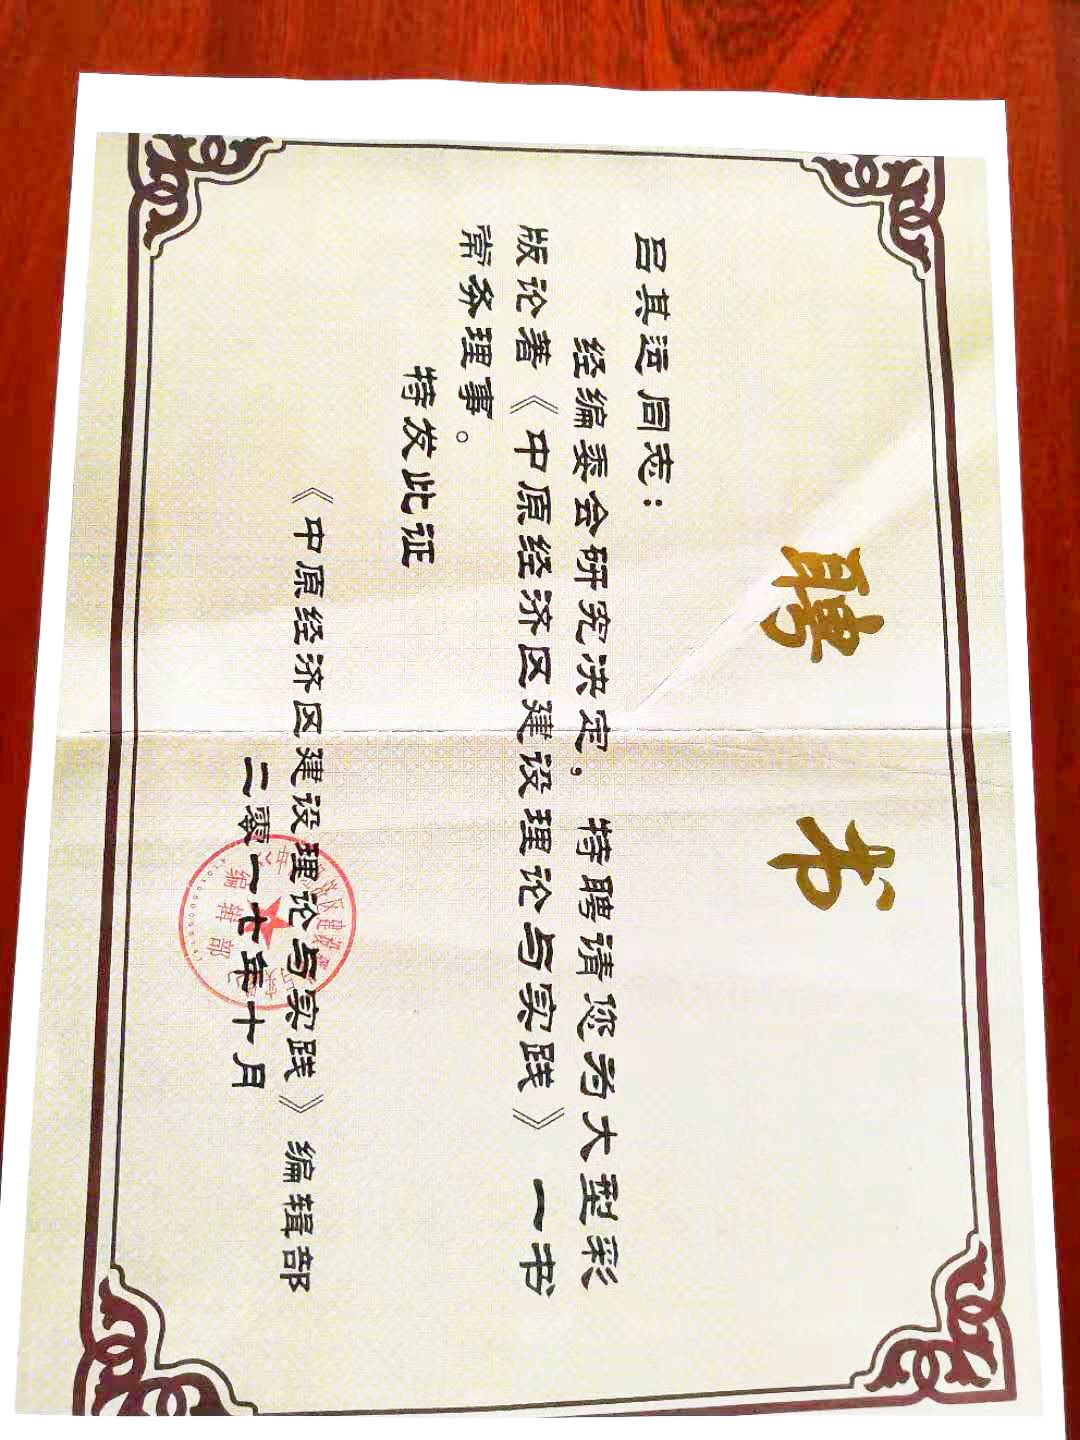 聘书
吕其远同志：
经编委会研究决定，特聘请您为大型彩
版论著《中原经济区建设理论与实践》一书
常务理事。
特发此证
《中原经济区建设理论与实践》编辑部
二零一七年十月
编辑部